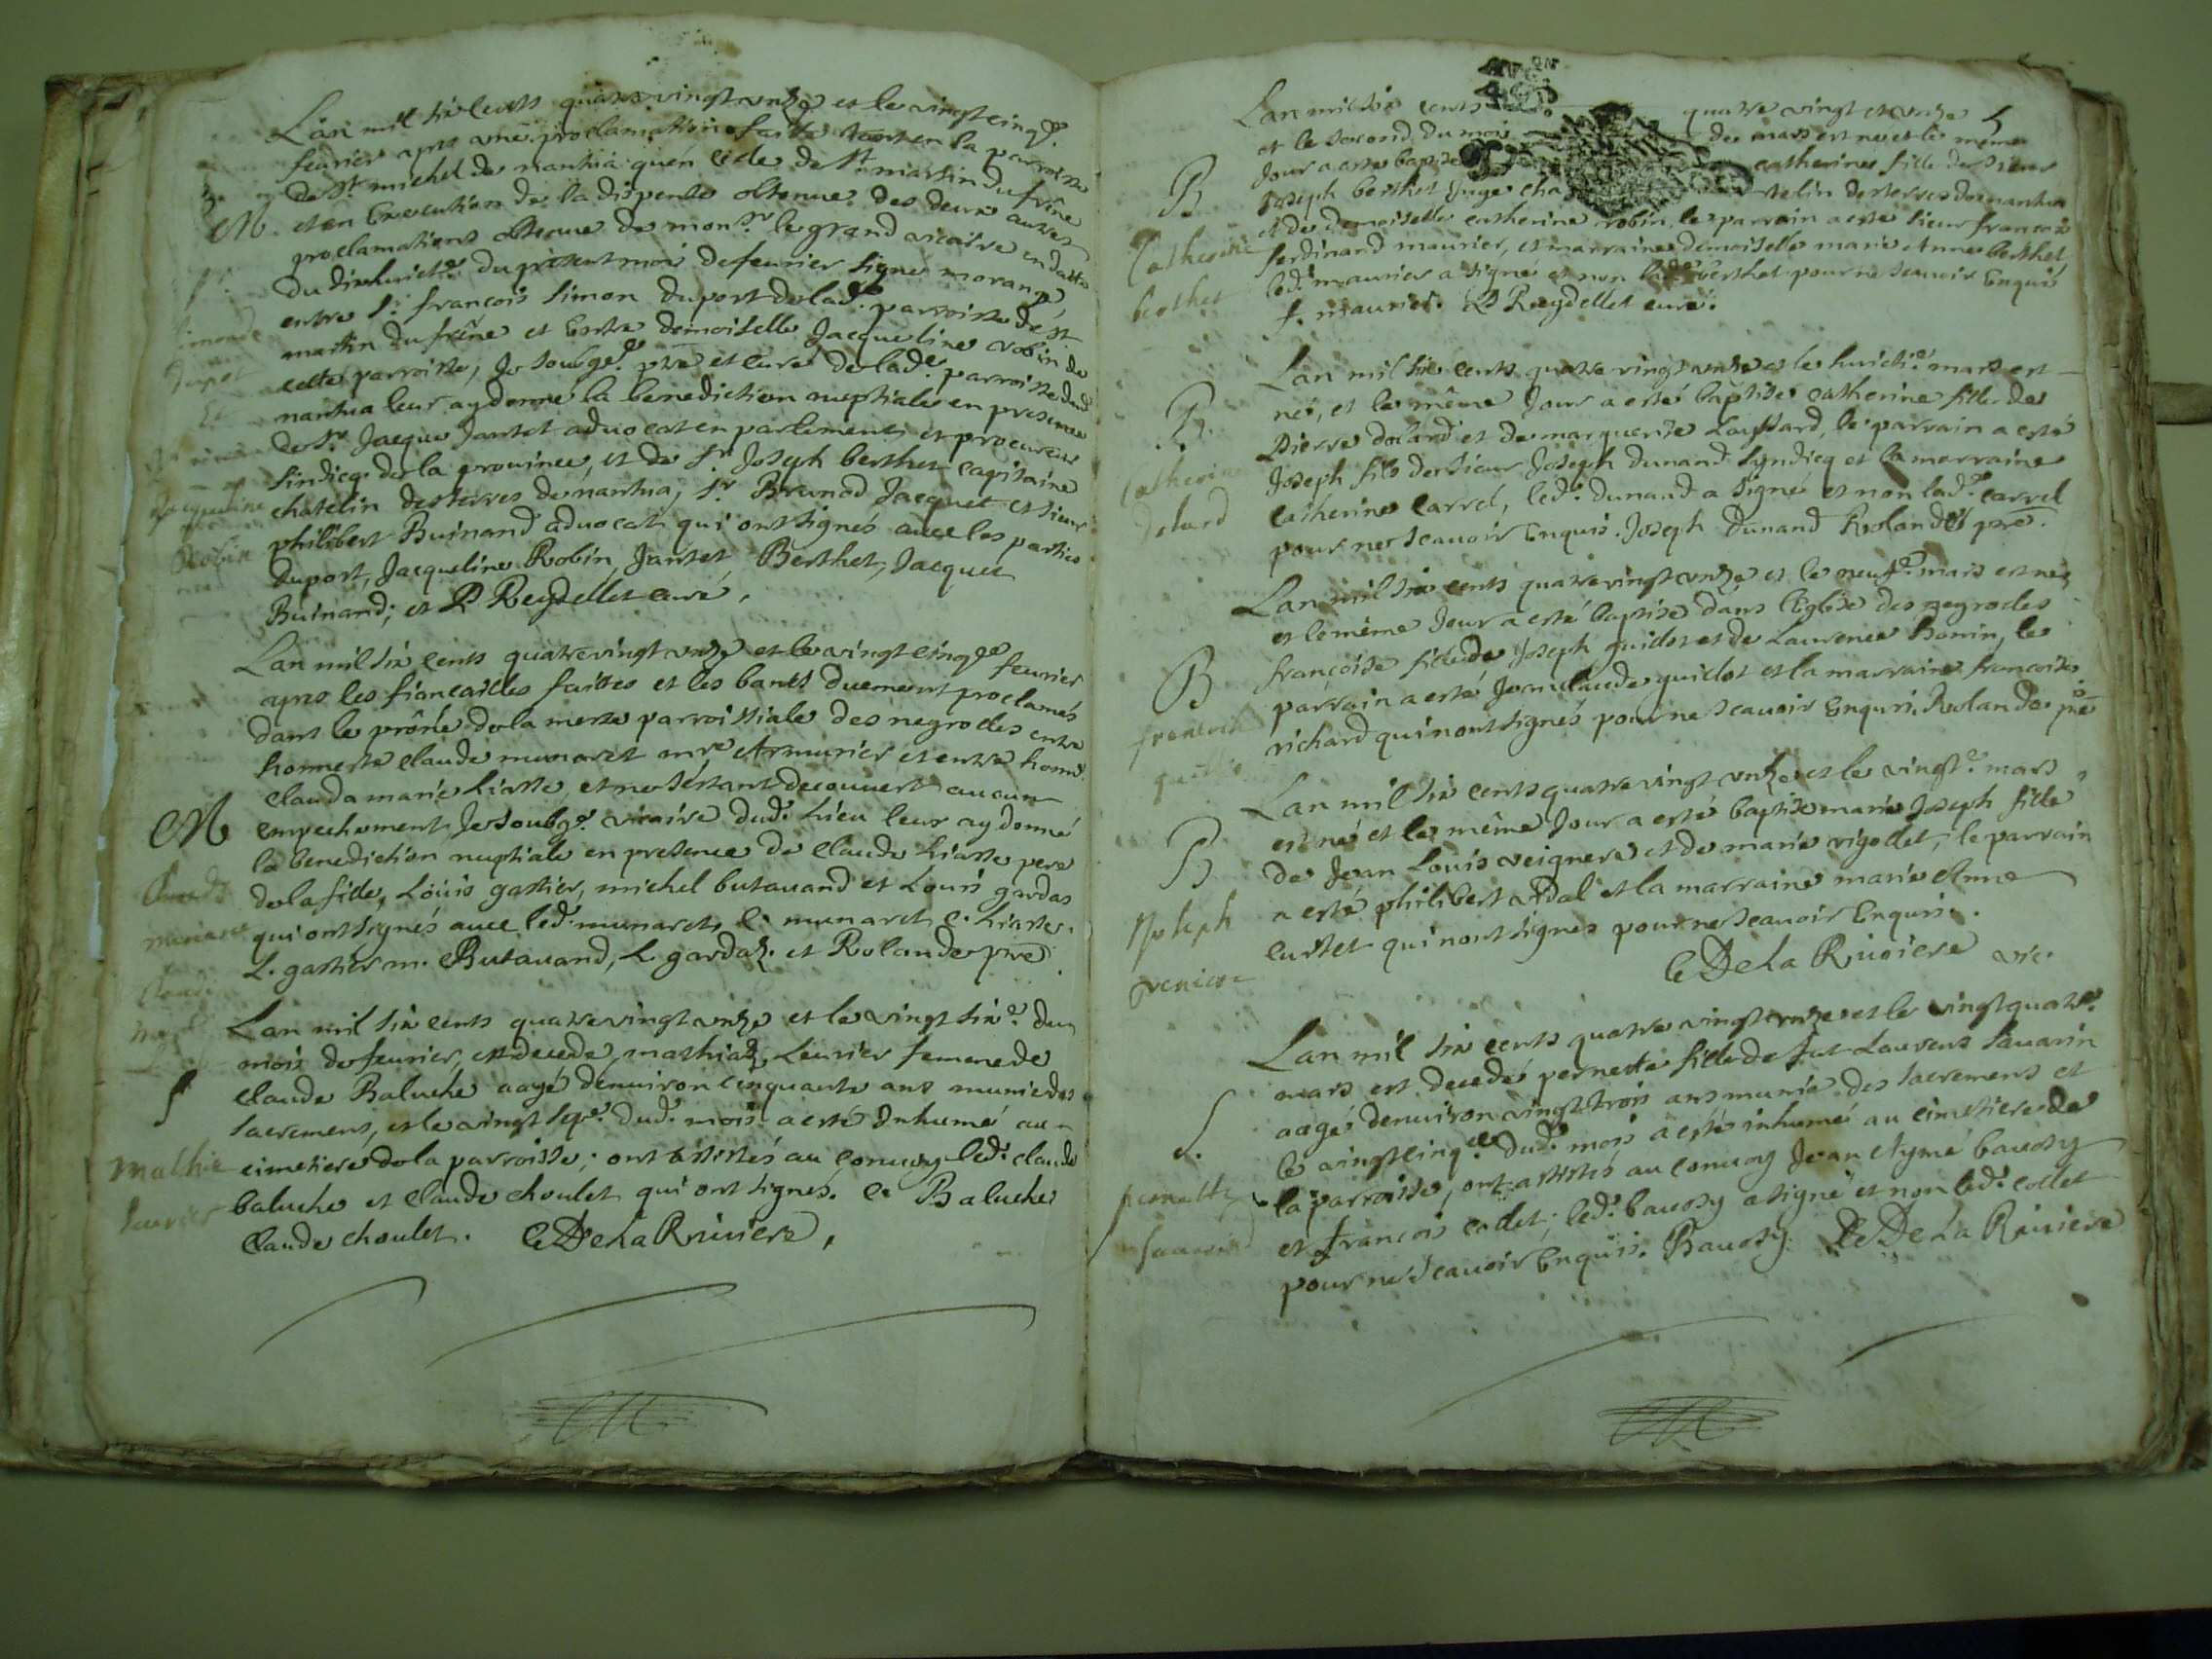 Lan mil six cents quatre vingt unze et le vingt cinq.e
feurier apres une proclamation faitte tant en la parroisse
de St michel de nantua quen celle de St martin du frêne
M. et en Execution de la dispense obtenue des deux autres
proclamations obtenue de monsr le grand vicaire en datte
du dixhuict.e du present moi de feurier signé morange
entre Sr francois Simon duport de lad.e parroisse de st
martin du frêne et Entre demoiselle Jacqueline robin de
cette parroisse, Je soubg.e pre et curé de lad.e parroisse dud.
nantua leur ay donné la benediction nuptiale en presence
de Sr Jacque Jantet aduocat en parlement et procureur
sindicq de la prouince, et de Sr Joseph berthet capitaine
chatelin des terres de nantua, Sr Brunod Jacquet et sieur
philibert Buinand aduocat qui ont signés auec les parties
duport, Jacqueline Robin, Jantet, Berthet, Jacquet
Buinand; et P Reydellet curé.
simond
duport
Et
Jacqueline
Robin
Lan mil six cents quatre vingt unze et le vingt cinq.e feurier
apres les fiancailles faittes et les bants duement proclamés
dans le prône de la messe parroissiale des negrolles entre
honneste claude munaret mre Armurier et entre honn.
clauda marie Liasse et ne sestant decouuert aucun
M empechement Je soubg.e vicaire dud. Lieu leur ay donné
la benediction nuptiale en presence de claude Liasse pere
de la fille, Loüis gastier, michel butauand et Louis gardas
qui ont signés auec led. munaret, c. munaret c. Liasse.
L. gastier m. Butauand, L gardaz. et Rolande pre
claude
munaret
Lan mil six cents quatre vingt unze et le vingt six.e du
mois de feurier, est decede mathiaz Leurier femme de
claude Baluche aagé denuiron cinquante ans munie des
S sacrement, et le vingt sep.e dud. mois a esté Inhumé au
cimetiere de la parroisse; ont assistés au conuoy led. claude
baluche et claude choulet qui ont signés. c. Baluche
claude choulet. C De La Riuiere,
Mathie
Leurier
Lan mil six cents quatre vingt et unze
et le second du mois de mars est née et le même
Jour a esté baptisé catherine fille de sieur
B Joseph berthet Juge cha telin des terres de nantua
et de demoiselle catherine robin, le parrain a esté sieur francois
ferdinand maurier, et marraine demoiselle marie Anne berthet
led. maurier a signé et non lad.e berthet pour ne scauoir Enquis
f. maurier. P Reydellet curé.
Catherine
berthet
Lan mil six cents quatre vingt unze et le huicti.e mars est
né, et le même Jour a esté baptisé catherine fille de
B. Pierre doland et de marguerite Layssard, le parrain a esté
Joseph fils de sieur Joseph dunand syndicq et la marraine
catherine carrel, led. dunand a signé et non lad.e carrel
pour ne scauoir Enquis. Joseph dunand Rolande pre.
Catherine
Lan mil six cents quatre vingt unze et le neuf.e mars est né
et le même Jour a esté baptisé dans lEglise des negrolles
B francoise fille de Joseph guidot et de Laurence bonin, le
parrain a esté Jean claude guidot et la marraine francoise
richard qui nont signés pour ne scauoir Enquis. Rolande pre
francoise
Lan mil six cents quatre vingt unze et le vingt.e mars
est né et le même Jour a esté baptisé marie Joseph fille
B de Jean Louis veignere et de marie rigollet, le parrain
a esté philibert Adal et la marraine marie Anne
curtet qui nont signés pour ne scauoir Enquis.
C De La Riuiere vic.
Joseph
Lan mil six cents quatre vingt unze et le vingt quatr.e
mars est decedé pernette fille de fut Laurens sauarin
S. aagé denuiron vingt trois ans munie des sacremens et
le vingt cinq.e dud. mois a esté inhumé au cimetiere de
la parroisse, ont assistés au conuoy Jean Aymé baudsy
et francois collet; led. baudsy a signé et non led. collet
pour ne scauoir Enquis. Baudsy. C De La Riuiere
pernette
sauarin